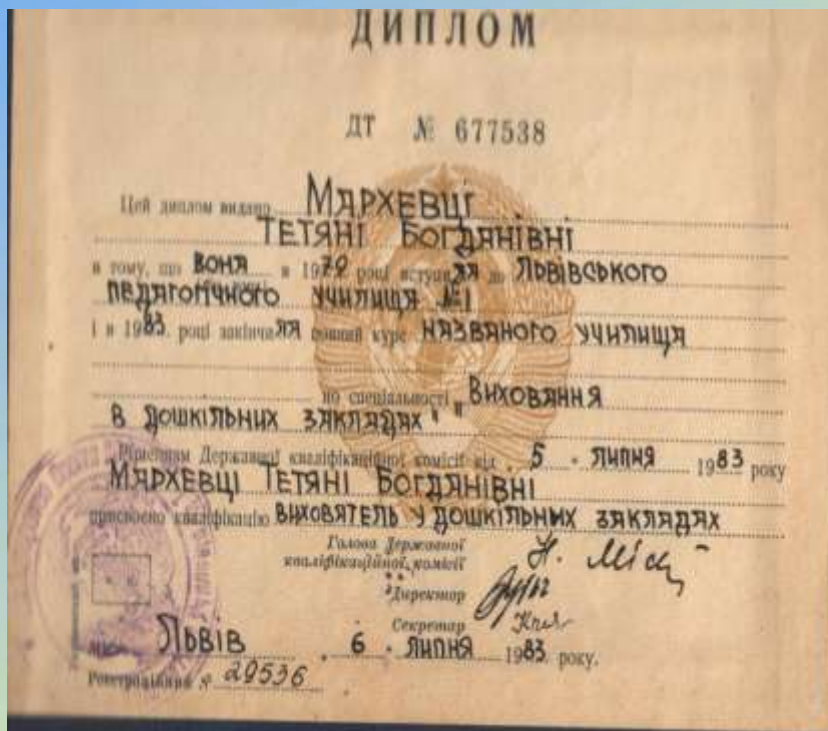 ДИПЛОМ
ДТ № 677538
Цей диплом видано МАРХЕВЦІ
ТЕТЯНІ БОГДАНІВНІ
в тому, що ВОНА в 1979 році вступила до ЛЬВІВСЬКОГО
ПЕДАГОГІЧНОГО УЧИЛИЩА №1
і в 1983 році закінчила повний курс НАЗВАНОГО УЧИЛИЩА
по спеціальності „ВИХОВАННЯ
В ДОШКІЛЬНИХ ЗАКЛАДАХ"
Рішенням Державної кваліфікаційної комісії від 5 ЛИПНЯ 1983 року
МАРХЕВЦІ ТЕТЯНІ БОГДАНІВНІ
присвоєно кваліфікацію ВИХОВАТЕЛЬ У ДОШКІЛЬНИХ ЗАКЛАДАХ
Голова Державної
кваліфікаційної комісії
Директор
Секретар
Місто ЛЬВІВ 6 ЛИПНЯ 1983 року.
Реєстраційний № 29536